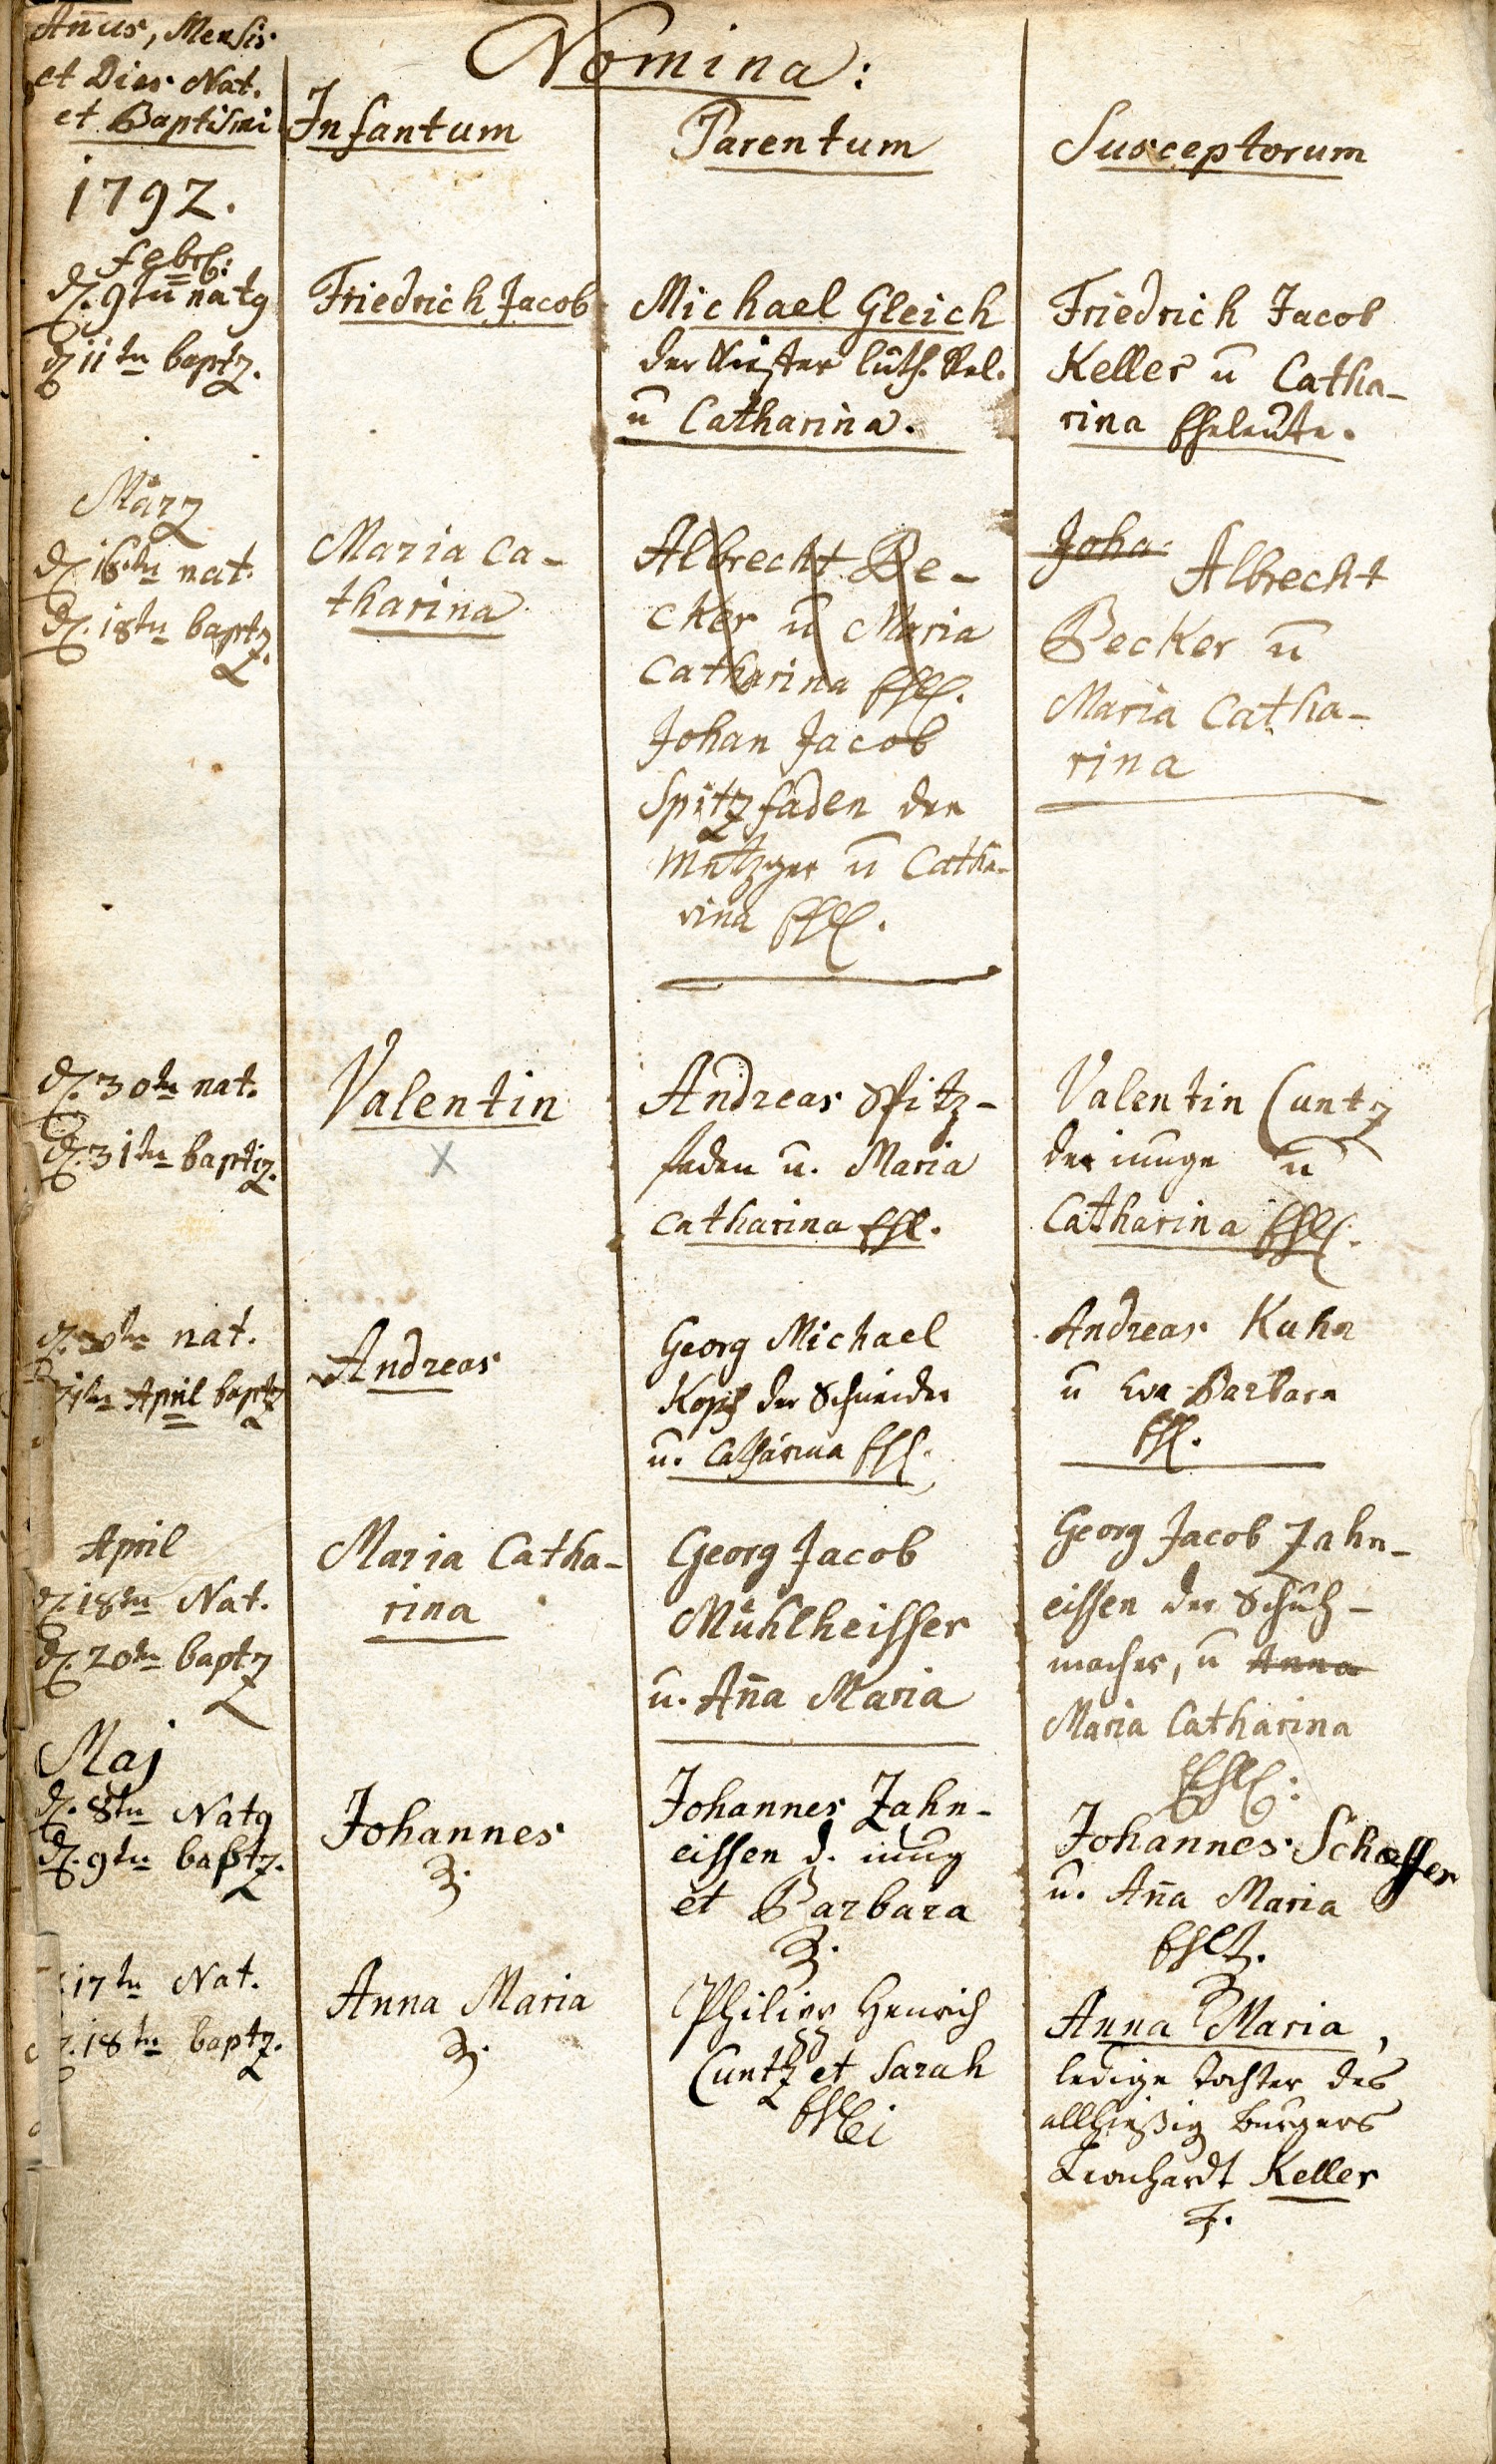 Añus, Mensis
et Dies Nat.
et Baptismi
Nomina:
Infantum
Parentum
Susceptorum
1792.
Febr:
d. 9tn nat9
d 11tn baptz.
Friedrich Jacob
Michael Gleich
der Küster luth. Rel.
ū Catharina.
Friedrich Jacob
Keller ū Catha-
rina Eheleute.
März
d. 16tn nat.
d. 18tn baptz.
Maria Ca-
tharina
Albrecht Be-
cker ū Maria
Catharina Ehl.
Johan Jacob
Spitzfaden der
Metzger ū Catha-
rina Ehl.
Joha:
Albrecht
Becker ū
Maria Catha-
rina
d. 30tn nat.
d. 31tn baptiz.
Valentin
x
Andreas Spitz-
faden u. Maria
Catharina Ehl.
Valentin Cuntz
der iunge ū
Catharina Ehl.
d. 30tn nat.
1tn April baptz
Andreas
Georg Michael
der Schneider
u. Catharina Ehl.
Andreas Kuhn
ū Eva Barbara
Ehl.
April
d. 18tn Nat.
d. 20tn baptz
Maria Catha-
rina
Georg Jacob
Mühlheisser
u. Aña Maria
Georg Jacob Zahn-
eissen der Schuh-
macher, ū Anna
Maria Catharina
Ehl:
Maj
d. 8tn Nat9
d. 9tn baptz.
Johannes
Johannes Zahn-
eissen d. iung
et Barbara
Johannes Schæffer
u. Aña Maria
Ehlt.
17tn Nat.
d. 18tn baptz.
Anna Maria
Philipp Henrich
Cuntz et Sarah
Anna Maria,
ledige Tochter des
allhiesig Burgers
Leonhardt Keller